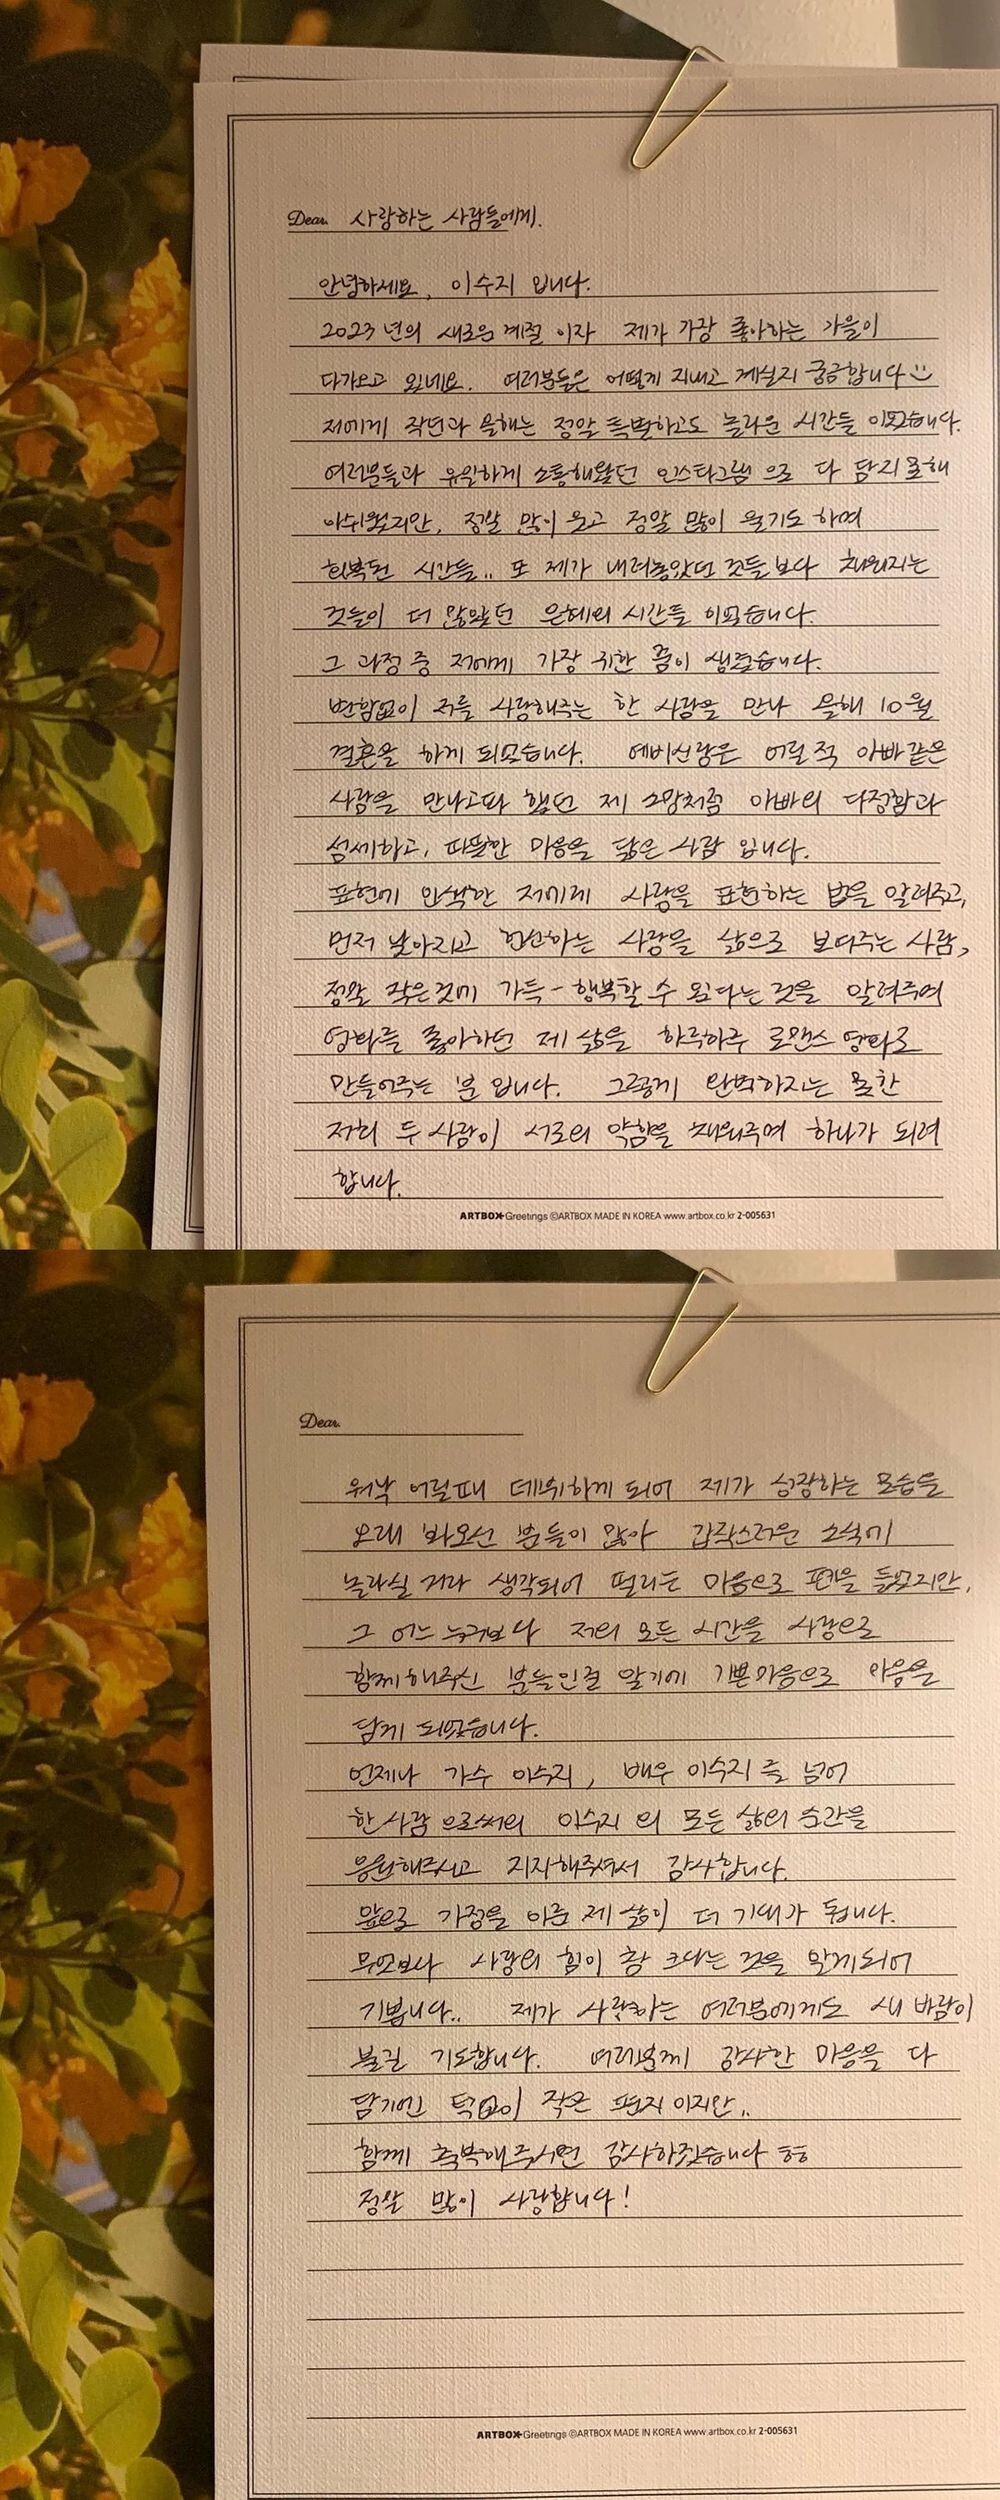 Dear. 사랑하는 사람들에게.
안녕하세요, 이수지 입니다.
2023년의 새로운 계절 이자 제가 가장 좋아하는 가을이
다가오고 있네요. 여러분들은 어떻게 지내고 계실지 궁금합니다
저에게 작년과 올해는 정말 특별하고도 놀라운 시간들 이었습니다.
여러분들과 유일하게 소통해왔던 인스타그램 으로 다 담지 못해
아쉬웠지만, 정말 많이 웃고 정말 많이 울기도 하며
회복된 시간들.. 또 제가 내려놓았던 것들 보다 채워지는
것들이 더 많았던 은혜의 시간들 이었습니다.
그 과정 중 저에게 가장 귀한 꿈이 생겼습니다.
변함없이 저를 사랑해주는 한 사람을 만나 올해 10월
결혼을 하게 되었습니다. 예비신랑은 어릴 적 아빠같은
사람을 만나고파 했던 제 소망처럼 아빠의 다정함과
섬세하고, 따뜻한 마음을 닮은 사람 입니다.
표현에 인색한 저에게 사랑을 표현하는 법을 알려주고,
먼저 낮아지고 헌신하는 사랑을 삶으로 보여주는 사람,
정말 작은것에 가득-행복할 수 있다는 것을 알려주며
영화를 좋아하던 제 삶을 하루하루 로맨스 영화로
만들어주는 분 입니다. 그렇게 완벽하지는 못한
저희 두 사람이 서로의 약함을 채워주며 하나가 되려
합니다.
ARTBOX Greetings ©ARTBOX MADE IN KOREA www.artbox.co.kr 2-005631
Dear.
워낙 어릴때 데뷔하게 되어 제가 성장하는 모습을
오래 봐오신 분들이 많아 갑작스러운 소식에
놀라실 거라 생각되어 떨리는 마음으로 펜을 들었지만,
그 어느 누구보다 저의 모든 시간을 사랑으로
함께해주신 분들인걸 알기에 기쁜마음으로 마음을
담게 되었습니다.
언제나 가수 이수지, 배우 이수지 를 넘어
한 사람 으로써의 이수지 의 모든 삶의 순간을
응원해주시고 지지해주셔서 감사합니다.
앞으로 가정을 이룬 제 삶이 더 기대가 됩니다.
무엇보다 사랑의 힘이 참 크다는 것을 알게되어
기쁩니다.. 제가 사랑하는 여러분에게도 새 바람이
불길 기도합니다. 여러분께 감사한 마음을 다
담기엔 턱없이 작은 편지 이지만..
함께 축복해주시면 감사하겠습니다 ㅎㅎ
정말 많이 사랑합니다!
ARTBOX Greetings ©ARTBOX MADE IN KOREA www.artbox.co.kr 2-005631